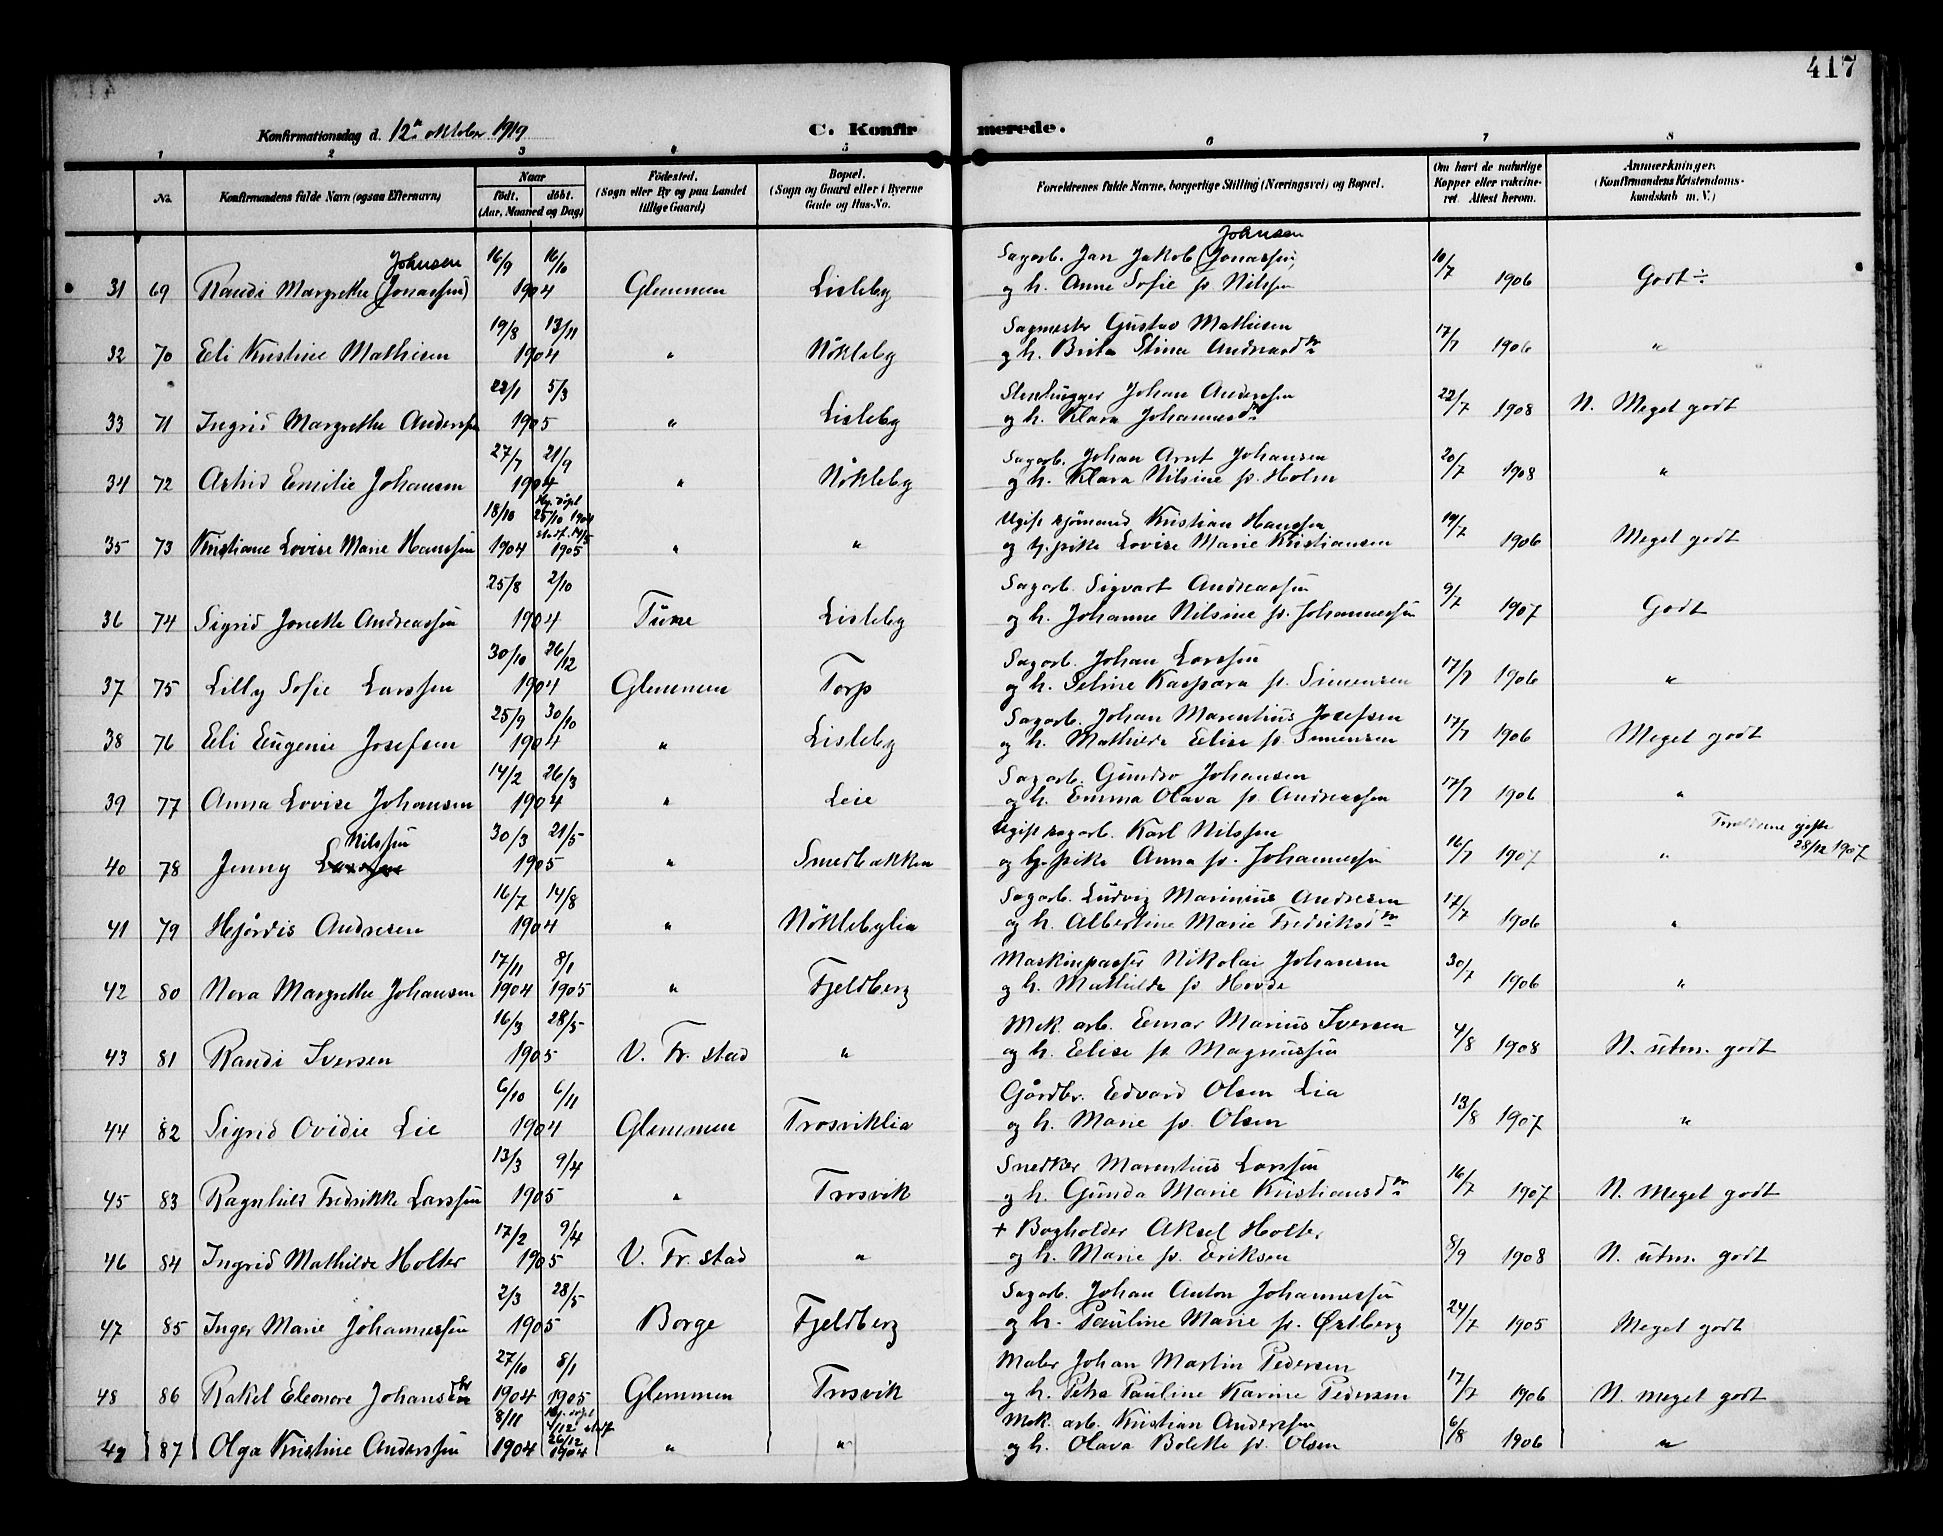 417
Konfirmationsdag d. 12te oktober 1919 C. Konfirmerede.
1 2 3 4 5 6 7 8
No. Konfirmandens fulde Navn (ogsaa Efternavn) Naar født. døbt. (Aar, Maaned og Dag) Fødested. (Sogn eller By og paa Landet tillige Gaard) Bopæl. (Sogn og Gaard eller i Byerne Gade og Hus-No. Forældrenes fulde Navne, borgerlige Stilling (Næringsvei) og Bopæl. Om havt de naturlige Kopper eller vakcineret. Attest herom. Anmærkninger. (Konfirmandens Kristendomskundskab m. V.)
Johnsen 16/9 16/10 Sagarb. Jan Jakob (Jonassen) Johnsen 10/7
31 69 Randi Margrethe (Jonassen) 1904 Glemmen Lisleby og h. Anne Sofie f. Nilssen 1906 Godt ÷
19/8 13/11 Sagmester Gustav Mathisen 17/7
32 70 Eli Kristine Mathisen 1904 " Nökleby og h. Brita Stina Andreasdtr 1906 "
22/1 5/3 Stenhugger Johan Anderssen 22/7
33 71 Ingrid Margrethe Anderssen 1905 " Lisleby og h. Klara Johannesdtr 1908 N. Meget godt
27/7 21/9 Sagarb. Johan Arnt Johansen 20/7
34 72 Astrid Emilie Johansen 1904 " Nökleby og h. Klara Nilsine f. Holm 1908 "
18/10 Hj. döpt 25/10 1904 stadf. 14/5 Ugift sjömand Kristian Hanssen 19/7
35 73 Kristiane Lovise Marie Hanssen 1904 1905 " " og pike Lovise Marie Kristiansen 1906 Meget godt
25/8 2/10 Sagarb. Sigvart Andreassen 9/7
36 74 Sigrid Jonette Andreassen 1904 Tune Lisleby og h. Johanne Nilsine f. Johannessen 1907 Godt
30/10 26/12 Sagarb. Johan Larssen
37 75 Lilly Sofie Larssen 1904 Glemmen Torp og h. Seline Kaspara f. Simensen 17/7 1906 "
25/9 30/10 Sagarb. Johan Marentius Josefsen
38 76 Eli Eugenie Josefsen 1904 " Lisleby og h. Mathilde Elise f. Simensen 17/7 1906 Meget godt
14/2 26/3 Sagarb. Gundro Johansen
39 77 Anna Lovise Johansen 1904 " Leie og h. Emma Olava f. Andreassen 17/7 1906 "
Nilssen 30/3 21/5 Ugift sagarb. Karl Nilssen Forældrene gifte 28/12 1907
40 78 Jenny Larssen 1905 " Smedbakken og pike Anna f. Johannessen 16/7 1907 "
16/7 14/8 Sagarb. Ludvig Marinius Andresen 17/7
41 79 Hjördis Andresen 1904 " Nöklebylia og h. Albertine Marie Fredriksdtr 1906 "
17/11 8/1 Maskinpasser Nikolai Johansen 30/7
42 80 Nora Margrethe Johansen 1904 1905 " Fjeldberg og h. Mathilde f. Hovde 1906 "
16/3 28/5 Mek. arb. Einar Marius Iversen
43 81 Randi Iversen 1905 V. Fr. stad " og h. Elise f. Magnussen 4/8 1908 N. utm. godt
6/10 6/11 Gårdbr. Edvard Olsen Lia
44 82 Sigrid Ovidie Lie 1904 Glemmen Trosviklia og h. Marie f. Olsen 13/8 1907 "
13/3 9/4 Snedker Marentius Larssen
45 83 Ragnhild Fredrikke Larssen 1905 " Trosvik og h. Gunda Marie Kristiansdtr 16/7 1907 N. meget godt
17/2 9/4 + Bogholder Aksel Holter
46 84 Ingrid Mathilde Holter 1905 V. Fr. stad " og h. Marie f. Eriksen 8/9 1908 N. utm. godt
2/3 28/5 Sagarb. Johan Anton Johannessen
47 85 Inger Marie Johannessen 1905 Borge Fjeldberg og h. Pauline Marie f. Østberg 24/7 1905 Meget godt
27/10 8/1 Maler Johan Martin Pedersen
48 86 Rakel Eleonore Johansdtr 1904 1905 Glemmen Trosvik og h. Petra Pauline Karine Pedersen 17/7 1906 N. meget godt
8/11 Hj. döpt 4/12 stadf. 26/12 Mek. arb. Kristian Anderssen
49 87 Olga Kristine Anderssen 1904 1904 " " og h. Olava Bolette f. Olsen 6/8 1906 "